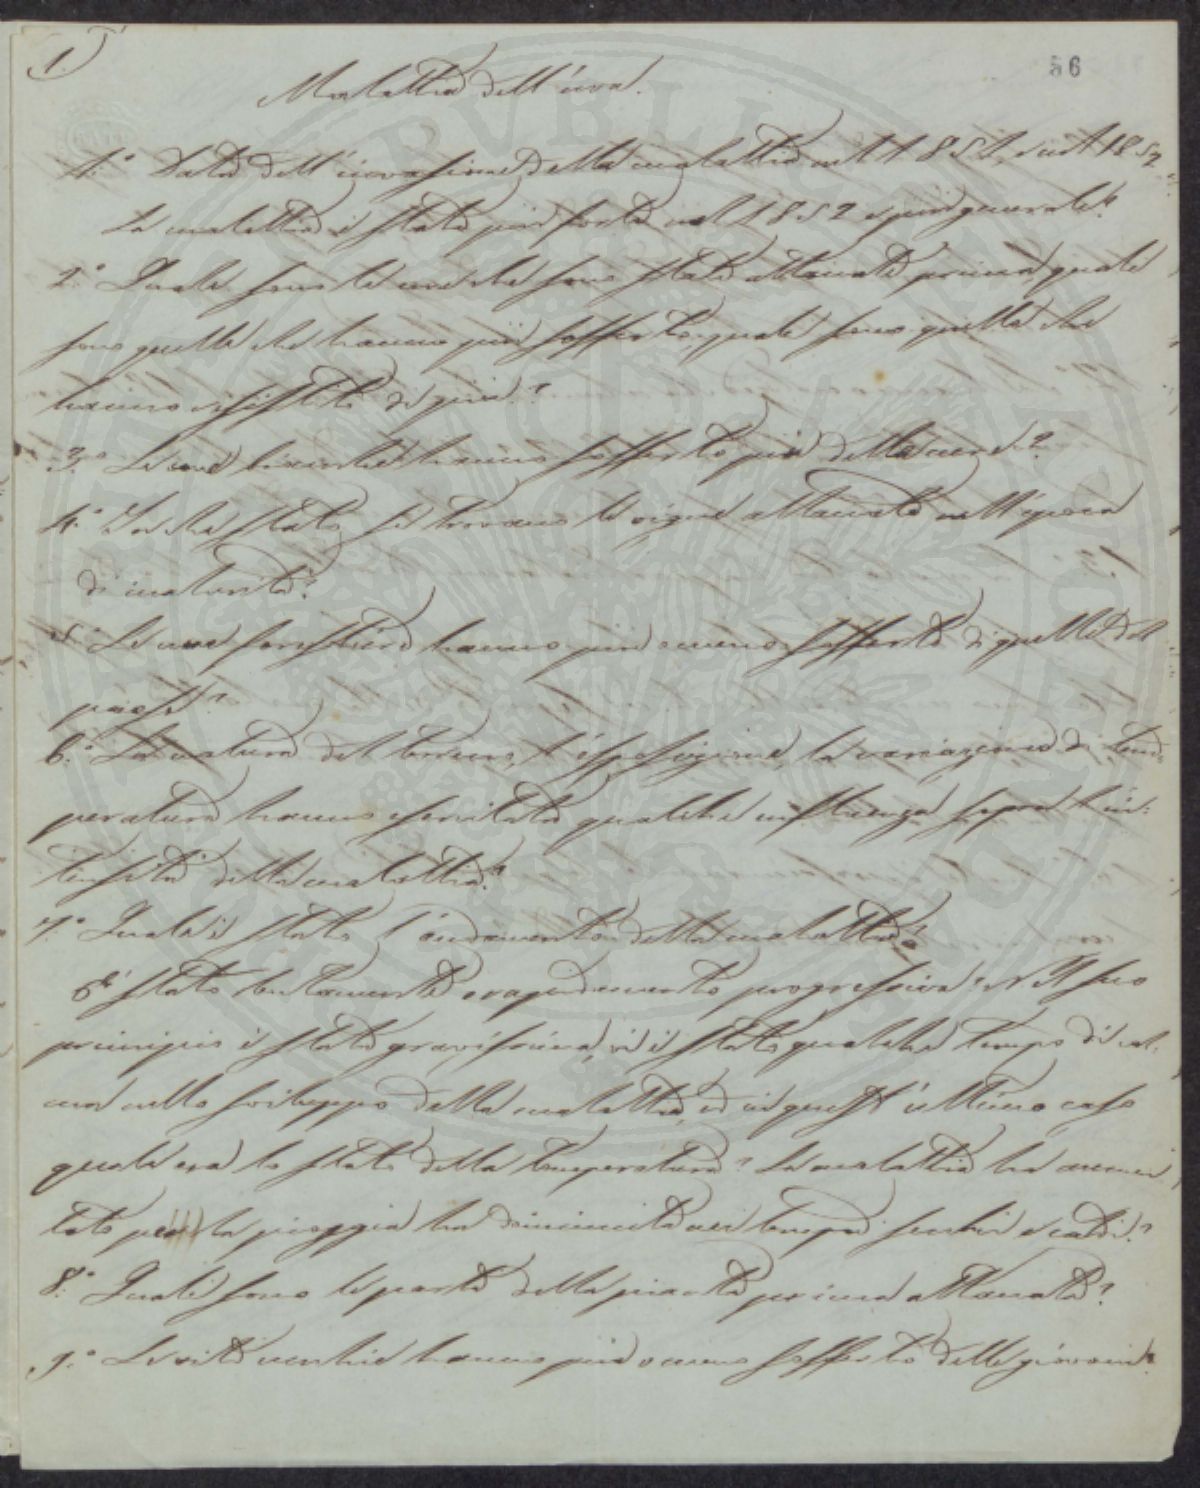 1.
56
Malattia dell'uva.
1.° Data dell'invasione della malattia nel 1851, e nel 1852.
La malattia è stata più forte nel 1852 e più generale?
2.° Quale sono le uve che sono state attaccate prima, quale
sono quelle che hanno più sofferto, quale sono quelle che
hanno resistito di più?
3.° Le uve bianche hanno sofferto più delle nere?
4.° In che stato si trovano le vigne attaccate nell'epoca
di maturità?
5.° Le uve forestiere hanno più o meno sofferto di quelle del
paese?
6.° La natura del terreno, l'esposizione, la variazione di tem-
peratura hanno esercitata qualche influenza sopra l'in-
tensità della malattia?
7.° Quale è stato l'andamento della malattia?
È stato lentamente o rapidamente progressiva? Nel suo
principio è stata gravissima, vi è stato qualche tempo di cal-
ma nello sviluppo della malattia, ed in quest'ultimo caso
quale era lo stato della temperatura? La malattia ha aumen
tato per la pioggia ha diminuita nei tempi secchi e caldi?
8.° Quali sono le parte della pianta prima attaccata?
9.° Le vite vecchie hanno più o meno sofferto delle giovani?